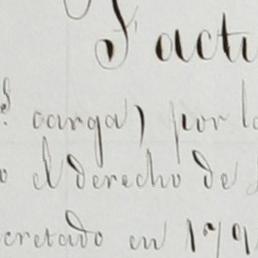 Factu
s. carga) por lo
o el derecho de
cretado en 179